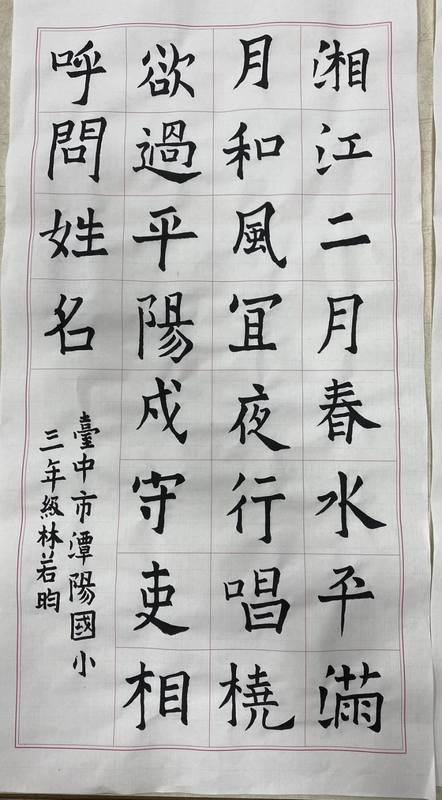 湘江二月春水平滿
月和風冝夜行唱橈
欲過平陽戍守吏相
呼問姓名
臺中市潭陽國小
三年級林若昀